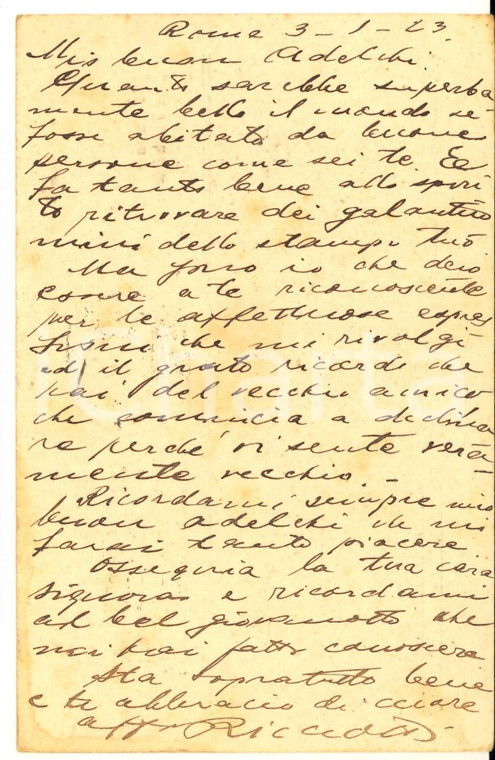 Roma 3-1-23
Mio buon Adelchi.
Quanto sarebbe superba
mente bello il mondo se
fosse abitato da buone
persone come sei te. E
fa tanto bene allo spiri
to ritrovare dei galantuo
mini dello stampo tuo
Ma sono io che devo
essere a te riconoscente
per le affettuose espres
sioni che mi rivolgi
ed il grato ricordo che
hai del vecchio amico
che comincia a declina
re perché si sente vera-
mente vecchio -
Ricordami sempre mio
buon Adelchi che mi
farai tanto piacere
Ossequia la tua cara
signora e ricordami
al bel giovanotto che
mi hai fatto conoscere
Sta sopratutto bene
e ti abbraccio di cuore
affo Ricciotti